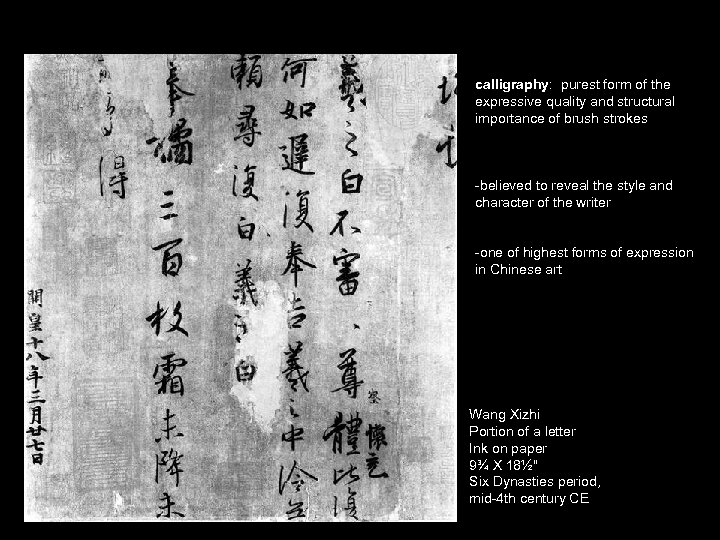 羲之白不審尊體比復
察
懷充
何如遲復奉告羲之中冷無
賴尋復白羲之白
奉橘三百枚霜未降未
可多得
開皇十八年三月廿七日
calligraphy: purest form of the
expressive quality and structural
importance of brush strokes
-believed to reveal the style and
character of the writer
-one of highest forms of expression
in Chinese art
Wang Xizhi
Portion of a letter
Ink on paper
9¾ X 18½"
Six Dynasties period,
mid-4th century CE